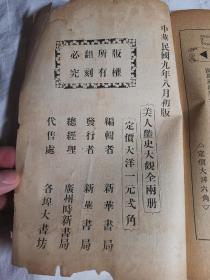 中華民國九年八月初版
美人艷史大觀全兩册
定價大洋一元弍角
版權所有翻刻必究
編輯者 新華書局
發行者 新華書局
總經理 廣州時新書局
代售處 各埠大書坊
定價大洋六角